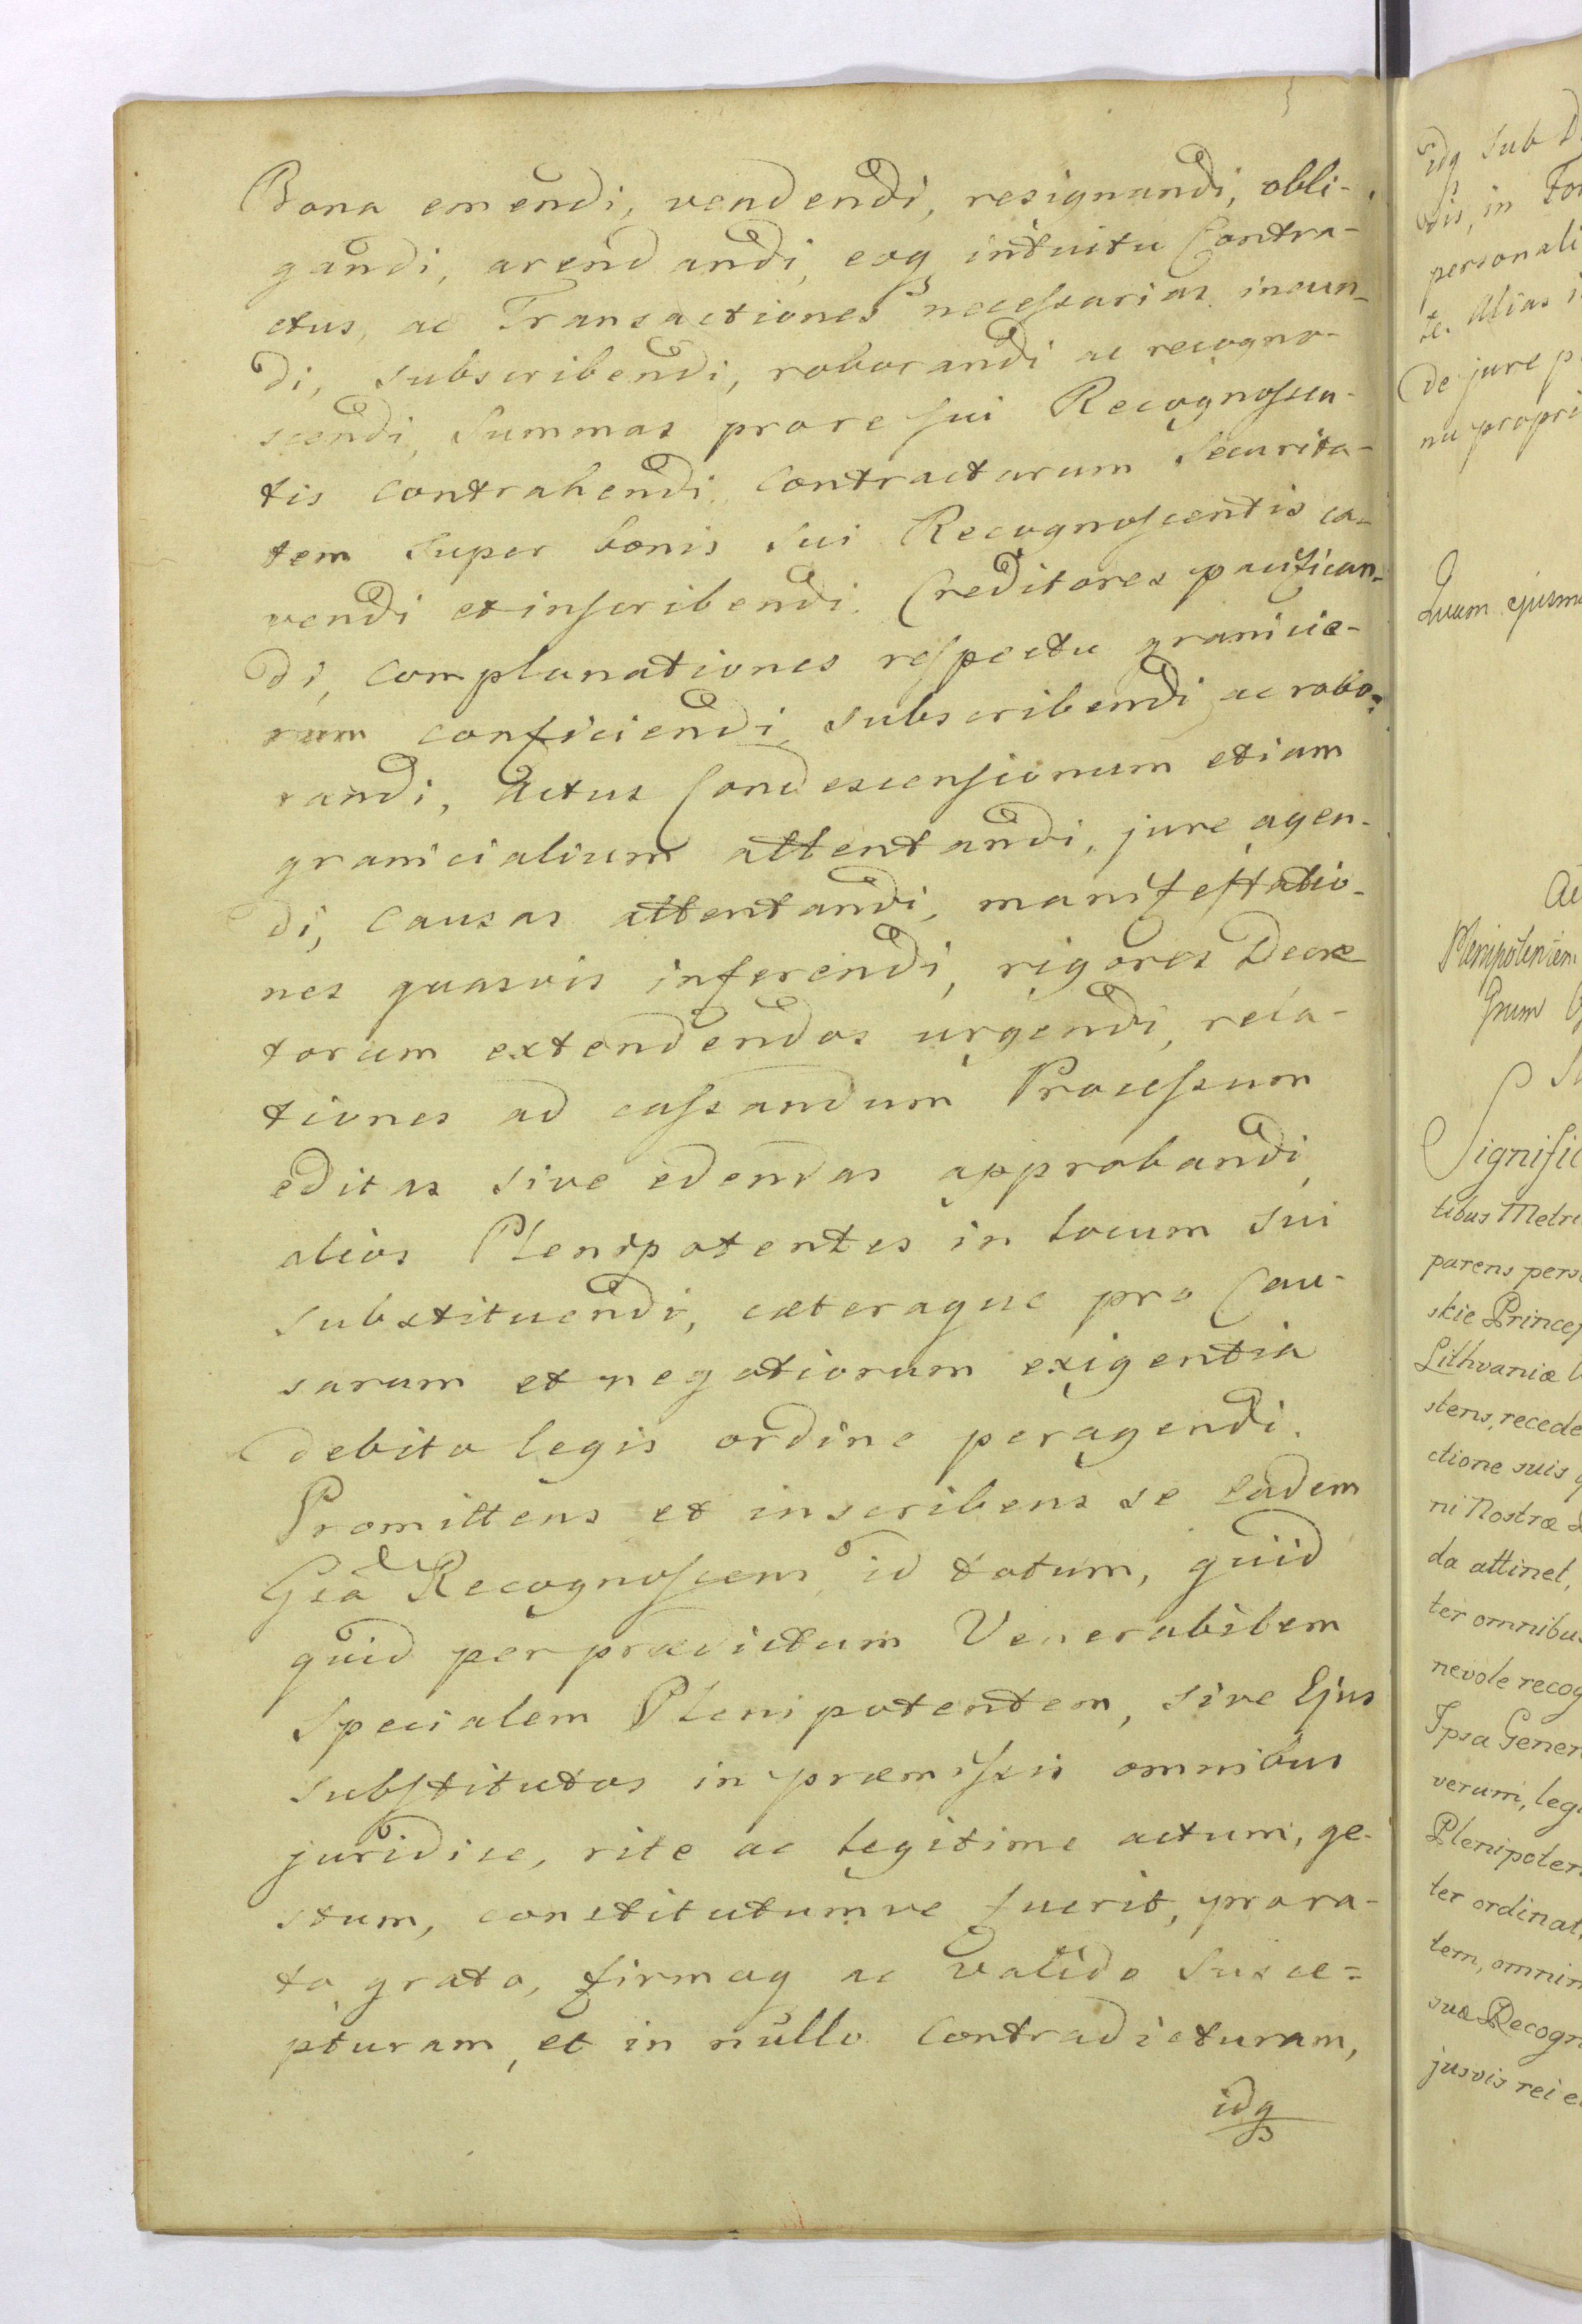 Bona emendi, vendendi, resignandi, obli-
gandi, arendandi, eoq3 intuitu Contra-
ctus, ac Transactiones necessarias ineun-
di, subscribendi, roborandi ac recogno-
scendi, Summas pro re sui Recognoscen-
tis contrahendi contractarum Securita-
tem super bonis sui Recognoscentis ca-
vendi et inscribendi. Creditores pacifican-
di, complanationes respectu granicie-
rum conficiendi, subscribendi ac robo-
randi, Actus Condescensionum etiam
granicialium attentandi, jure agen-
di, causas attentandi, manifestatio-
nes quasvis inferendi, rigores Decre
torum extendendos urgendi, rela-
tiones ad cassandum Processum
editas sive edendas approbandi,
alios Plenipotentes in locum sui
substituendi, cæteraque pro Cau-
sarum et negotiorum exigentia
debito legis ordine peragendi.
Promittens et inscribens se eadem
Gsa Recognoscens, id totum, quid
quid per prædictum Venerabilem
Specialem Plenipotentem, sive Ejus
substitutos in præmissis omnibus
juridice, rite ac legitime actum, ge-
stum, constitutumve fuerit, pro ra-
to, grato, firmoq ac valido susce-
pturam, et in nullo contradicturam,
idq3
idq3 sub
dis, in
personali
te. Alias
de jure
nu propri
Quum ejusm
Plenipotentem
Signific
tibus Metri
parens pers
skie Princep
Lithvaniæ
stens, recede
ctione suis
ni Nostræ
da attinet,
ter omnibus
nevole recog
Ipsa Gener
verum, leg
Plenipoten
ter ordinat,
tem, omnim
suæ Recogn
jusvis rei e